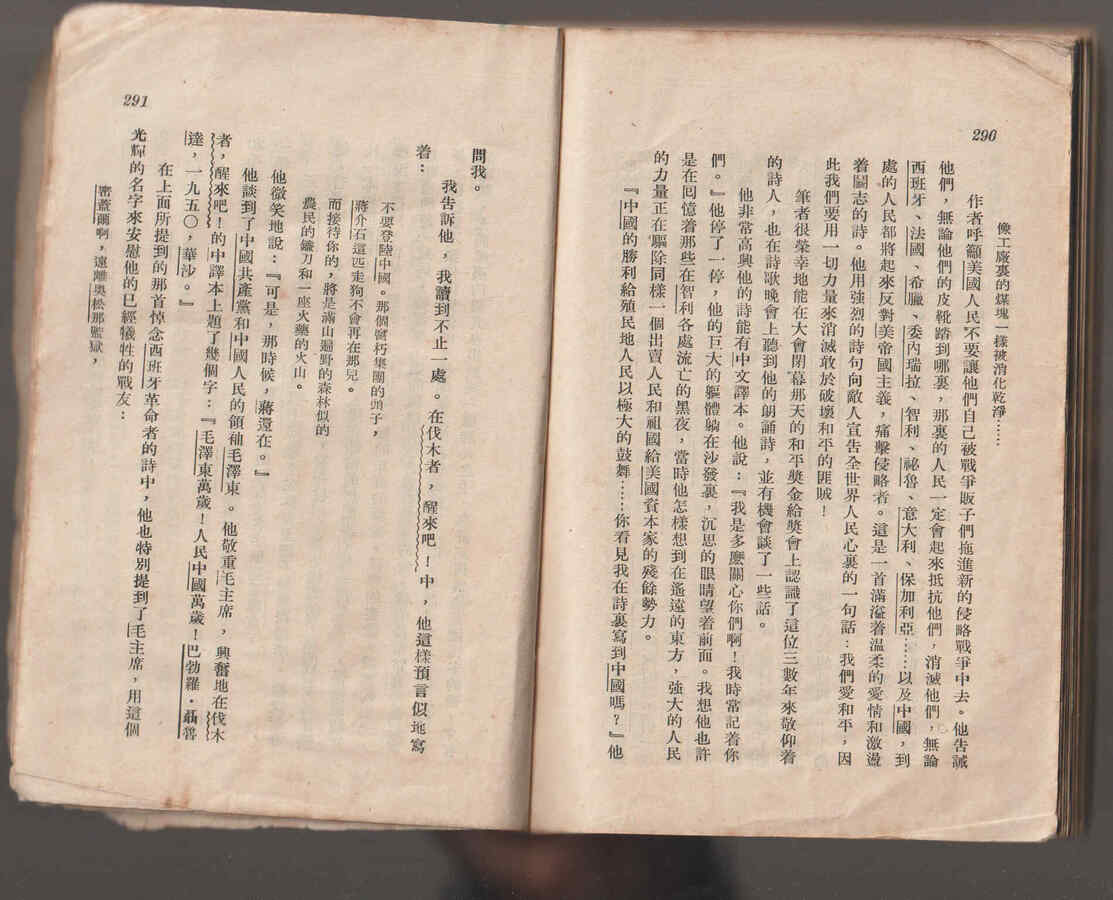 290
像工廠裏的煤塊一樣被消化乾淨……
作者呼籲美國人民不要讓他們自己被戰爭販子們拖進新的侵略戰爭中去。他告誡
他們，無論他們的皮靴踏到哪裏，那裏的人民一定會起來抵抗他們，消滅他們，無論
西班牙、法國、希臘、委內瑞拉、智利、祕魯、意大利、保加利亞……以及中國，到
處的人民都將起來反對美帝國主義，痛擊侵略者。這是一首滿溢着溫柔的愛情和激盪
着鬪志的詩。他用強烈的詩句向敵人宣告全世界人民心裏的一句話：我們愛和平，因
此我們要用一切力量來消滅敢於破壞和平的匪賊！
筆者很榮幸地能在大會閉幕那天的和平獎金給獎會上認識了這位三數年來敬仰着
的詩人，也在詩歌晚會上聽到他的朗誦詩，並有機會談了一些話。
他非常高興他的詩能有中文譯本。他說：『我是多麽關心你們啊！我時常記着你
們。』他停了一停，他的巨大的軀體躺在沙發裏，沉思的眼睛望着前面。我想他也許
是在囘憶着那些在智利各處流亡的黑夜，當時他怎樣想到在遙遠的東方，強大的人民
的力量正在驅除同樣一個出賣人民和祖國給美國資本家的殘餘勢力。
『中國的勝利給殖民地人民以極大的鼓舞……你看見我在詩裏寫到中國嗎？』他
291
問我。
我告訴他，我讀到不止一處。在伐木者，醒來吧！中，他這樣預言似地寫
着：
不要登陸中國。那個腐朽集團的頭子，
蔣介石這匹走狗不會再在那兒。
而接待你的，將是滿山遍野的森林似的
農民的鐮刀和一座火藥的火山。
他微笑地說：『可是，那時候，蔣還在。』
他談到了中國共產黨和中國人民的領袖毛澤東。他敬重毛主席，興奮地在伐木
者，醒來吧！的中譯本上題了幾個字：『毛澤東萬歲！人民中國萬歲！巴勃羅·聶魯
達，一九五〇，華沙。』
在上面所提到的那首悼念西班牙革命者的詩中，他也特別提到了毛主席，用這個
光輝的名字來安慰他的已經犧牲的戰友：
密蓋爾啊，遠離奧松那監獄，